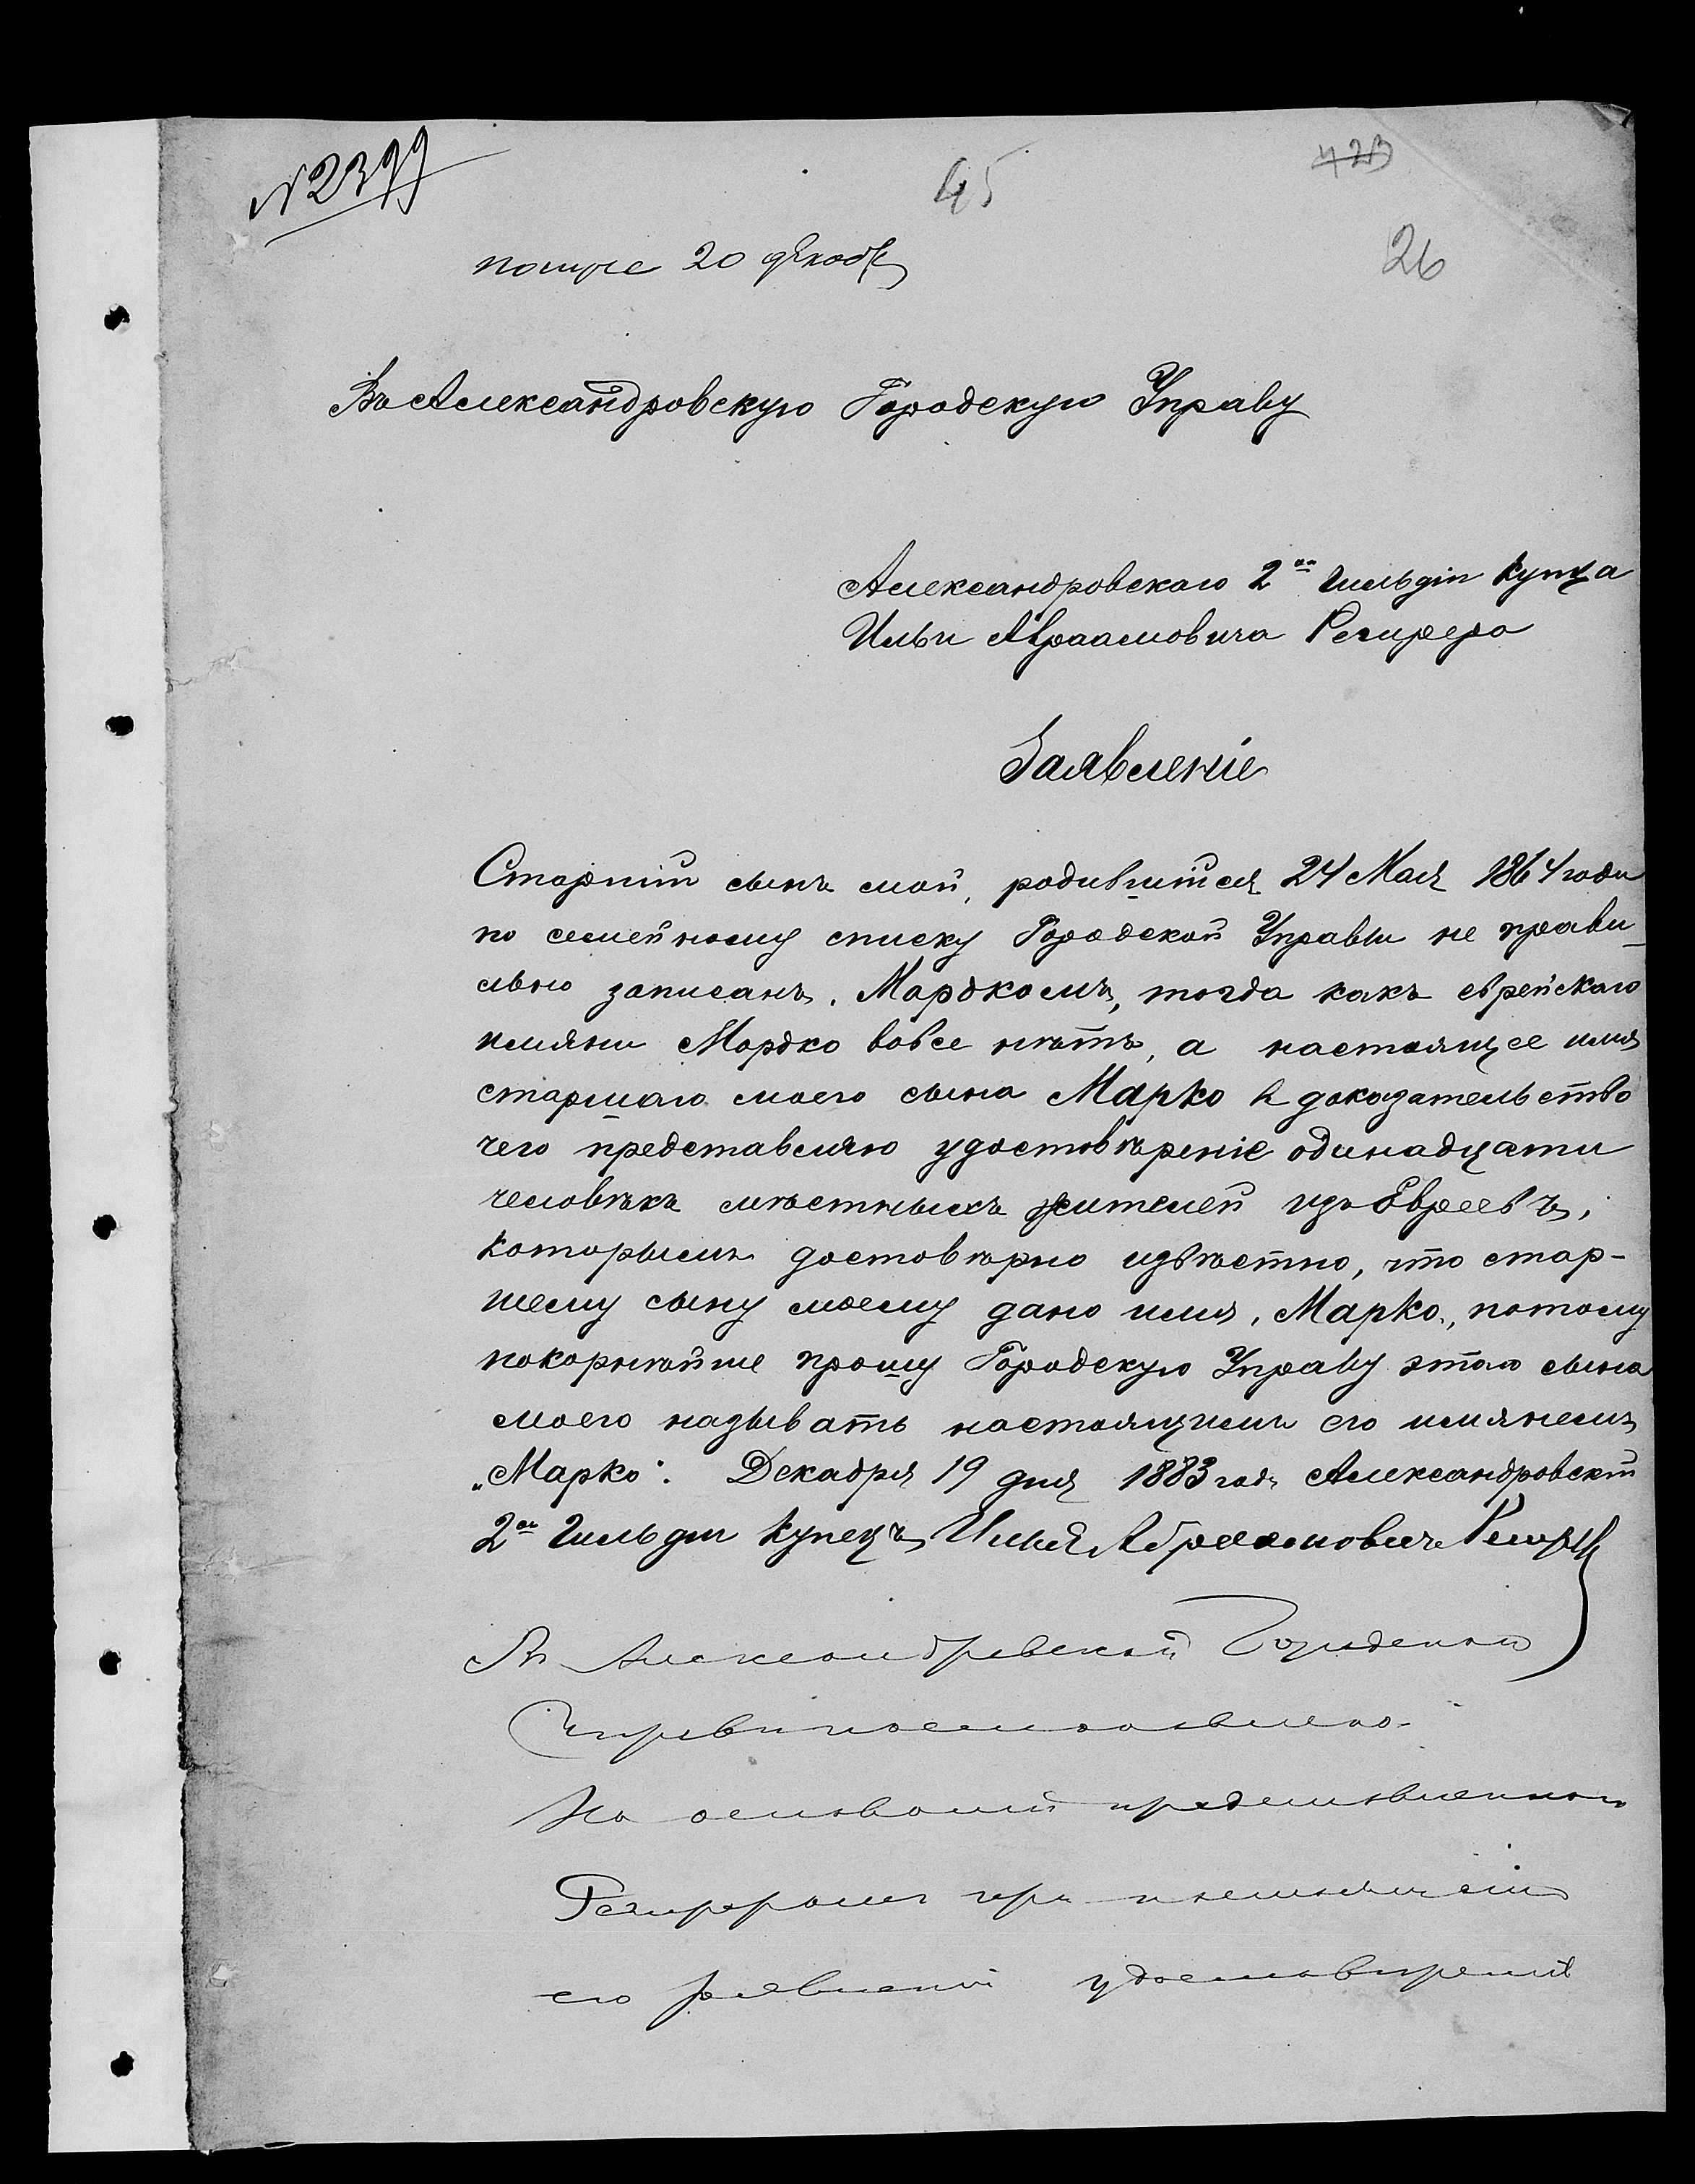 № 2399
45
423
26
получе 20 декаб
Въ Александровскую Городскую Управу
Александровскаго 2ой Гильдіи Купца
Ильи Авраамовича
Заявленіе
Старшій сынъ мой, родившійся 24 Мая 1864 года
по семейному списку Городской Управы не прави-
льно записанъ „Мордкомъ„, тогда какъ еврейскаго
имяни Мордко вовсе нѣтъ, а настоящее имя
старшаго моего сына Марко в доказательство
чего представляю удостовѣреніе одинадцати
человѣкъ мѣстныхъ жителей изъ Евреевъ,
которымъ достовѣрно извѣстно, что стар-
шему сыну моему дано имя „Марко„, потому
покорнѣйше прошу Городскую Управу этого сына
моего называть настоящимъ его имянемъ
„Марко“. Декабря 19 дня 1883 года Александровскій
2ой Гильдіи Купецъ Илья Абраамовичъ
Въ Александровской Городской
Управѣ постановлено
На основаніи представленнаго
при настоящемъ
его заявленіи удостовѣренія